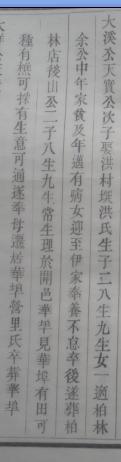 大溪公天實公次子娶洪村墩洪氏生子二八生九生女一適柏林
余公公中年家貧及年邁有病女迎至伊家奉養不怠卒後遂葬柏
林店後山公二子八生九生常生理於開邑華埠見華埠有田可
種有無可採有生意可通遂奉母遷居華埠營里氏卒葬華埠